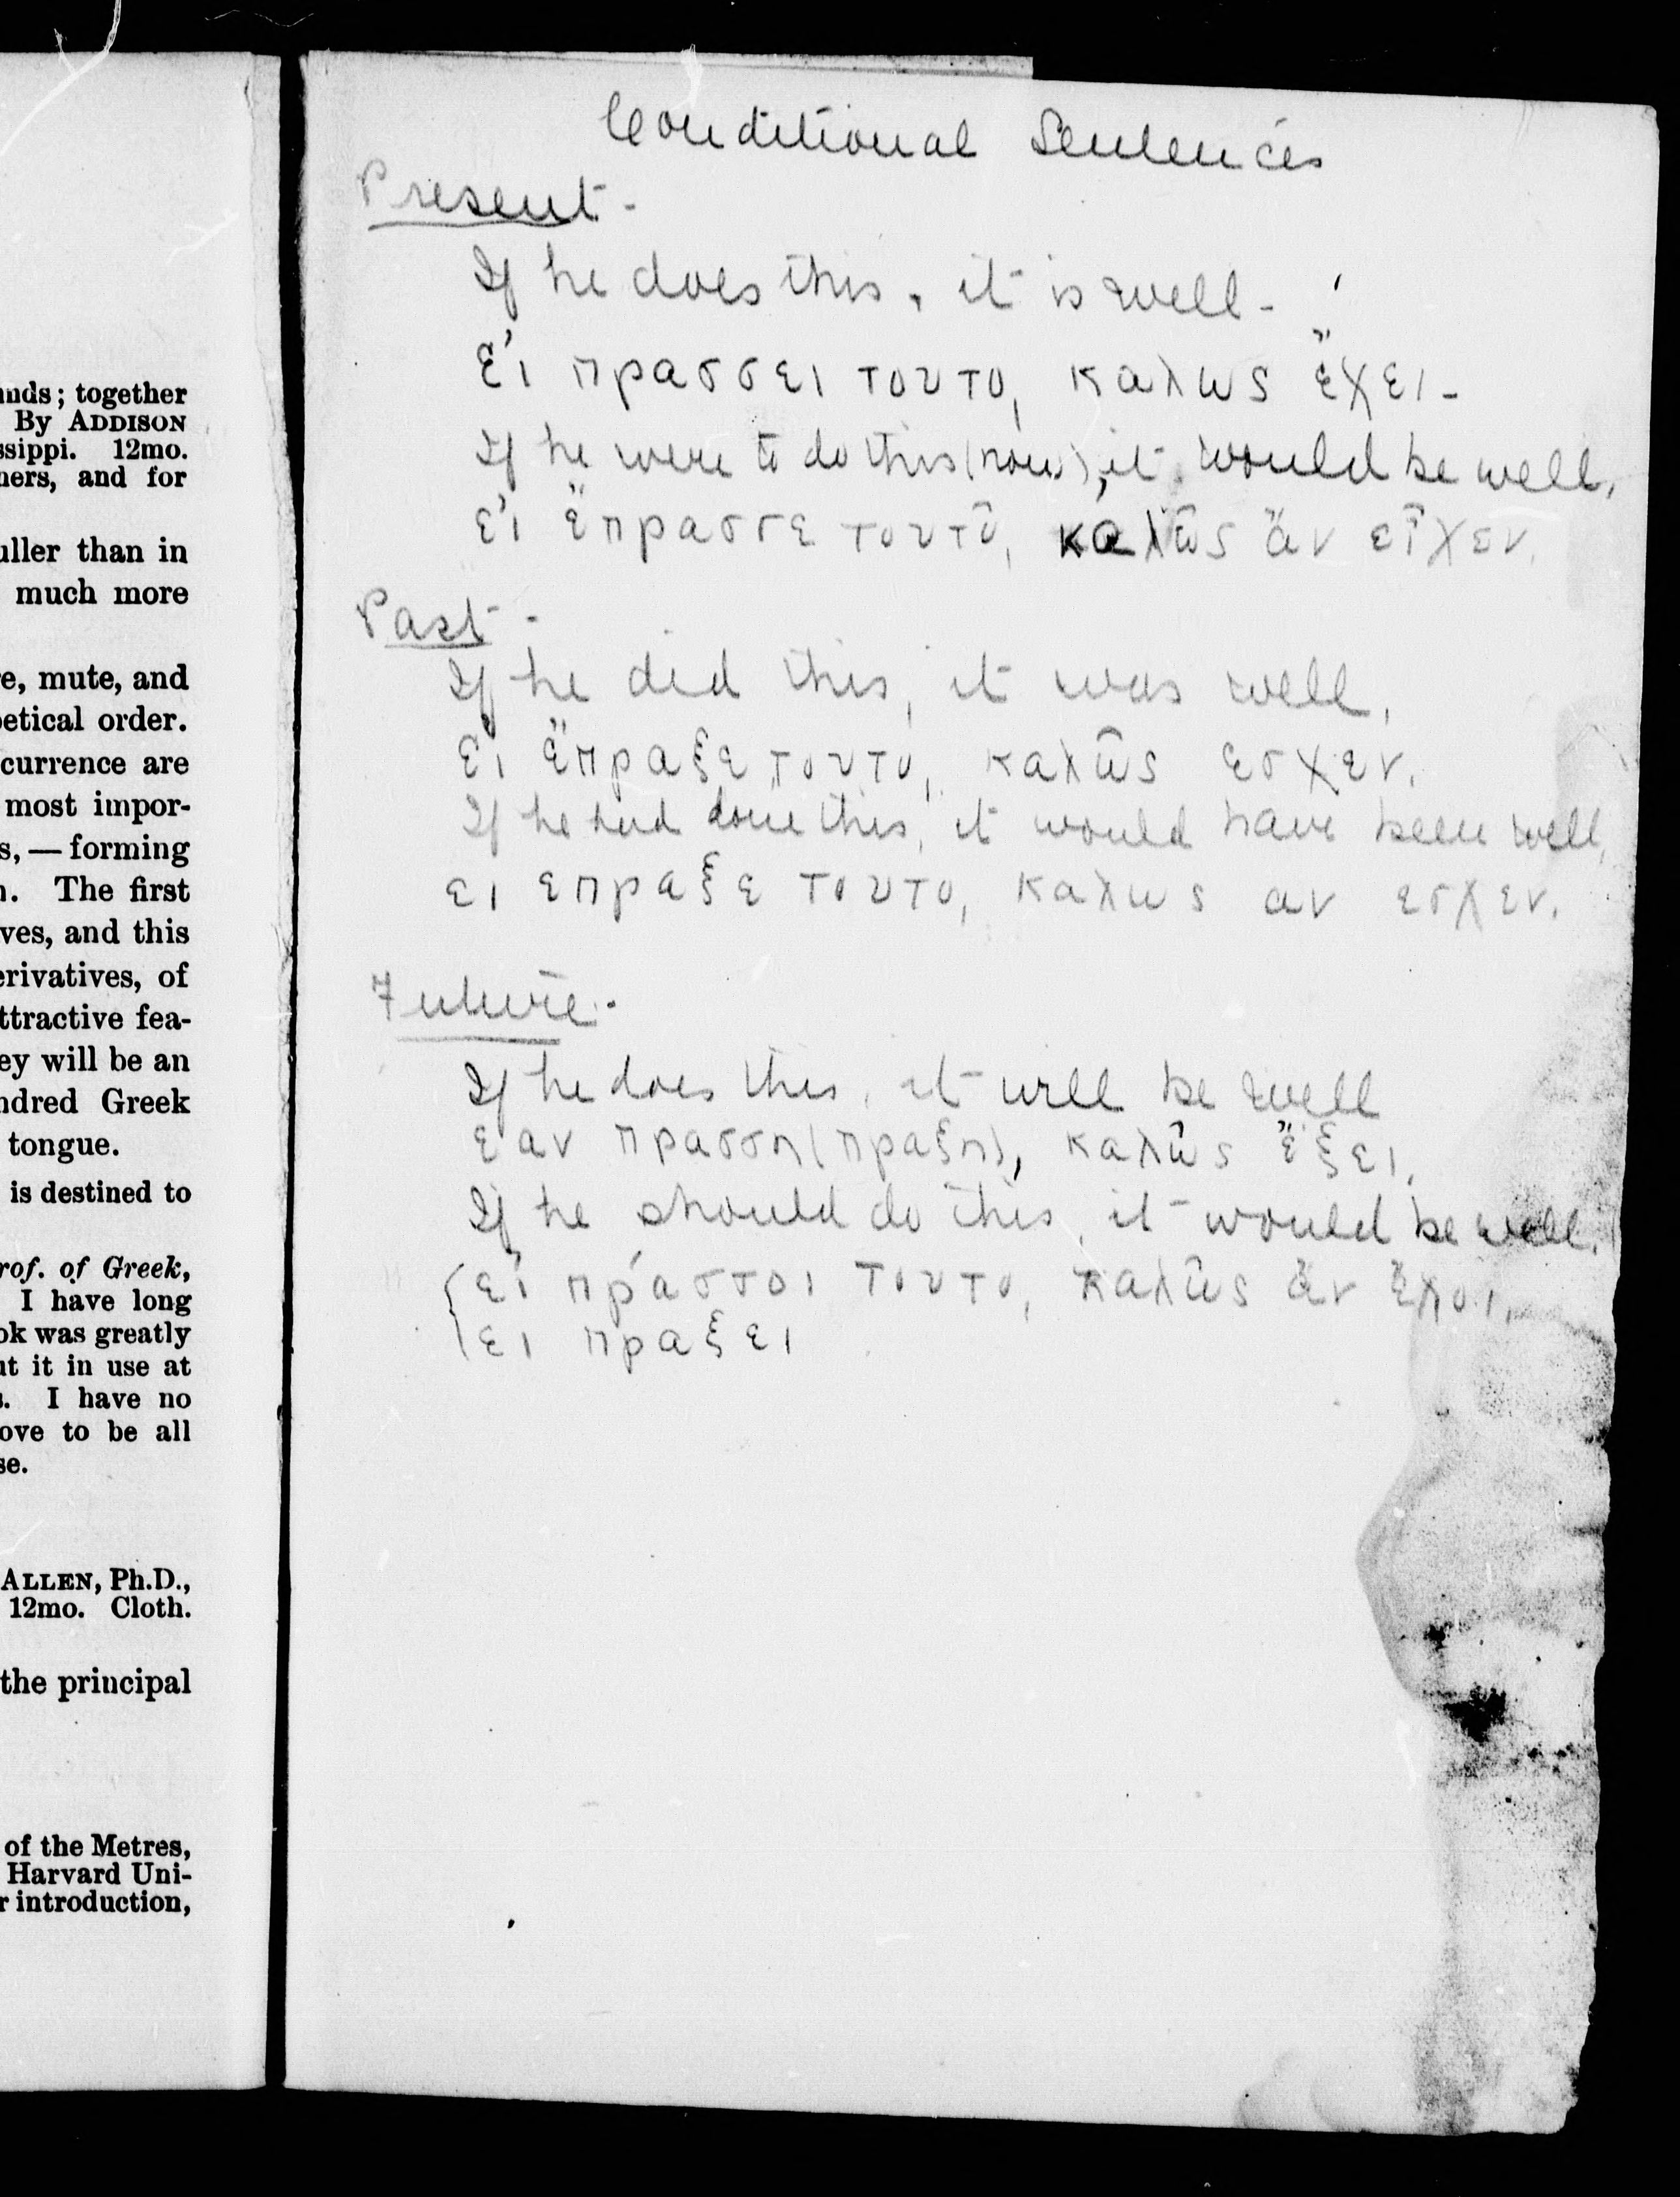 unds; together
By ADDISON
ssippi. 12mo.
ners, and for
uller than in
much more
e, mute, and
petical order.
currence are
most impor-
s, — forming
n. The first
ves, and this
erivatives, of
ttractive fea-
ey will be an
ndred Greek
tongue.
is destined to
rof. of Greek,
I have long
ok was greatly
ut it in use at
s. I have no
ove to be all
se.
ALLEN, Ph.D.,
12mo. Cloth.
the principal
of the Metres,
Harvard Uni-
r introduction,
Conditional Sentences
Present -
If he does this, it is well -
Εἰ πρασσει τουτο, καλως ἔχει -
If he were to do this (now), it would be well.
εἰ ἔπρασσε τουτο, καλῶς ἄν εἶχεν.
Past -
If he did this, it was well.
εἰ ἔπραξε τουτο, καλῶς εσχεν.
If he had done this, it would have been well.
ει επραξε τουτο, καλως αν εσχεν.
Future -
If he does this, it will be well
εαν πρασση (πραξη), καλῶς ἕξει.
If he should do this, it would be well.
εἰ πράσσοι τουτο, καλῶς ἄν ἔχοι.
ει πραξει